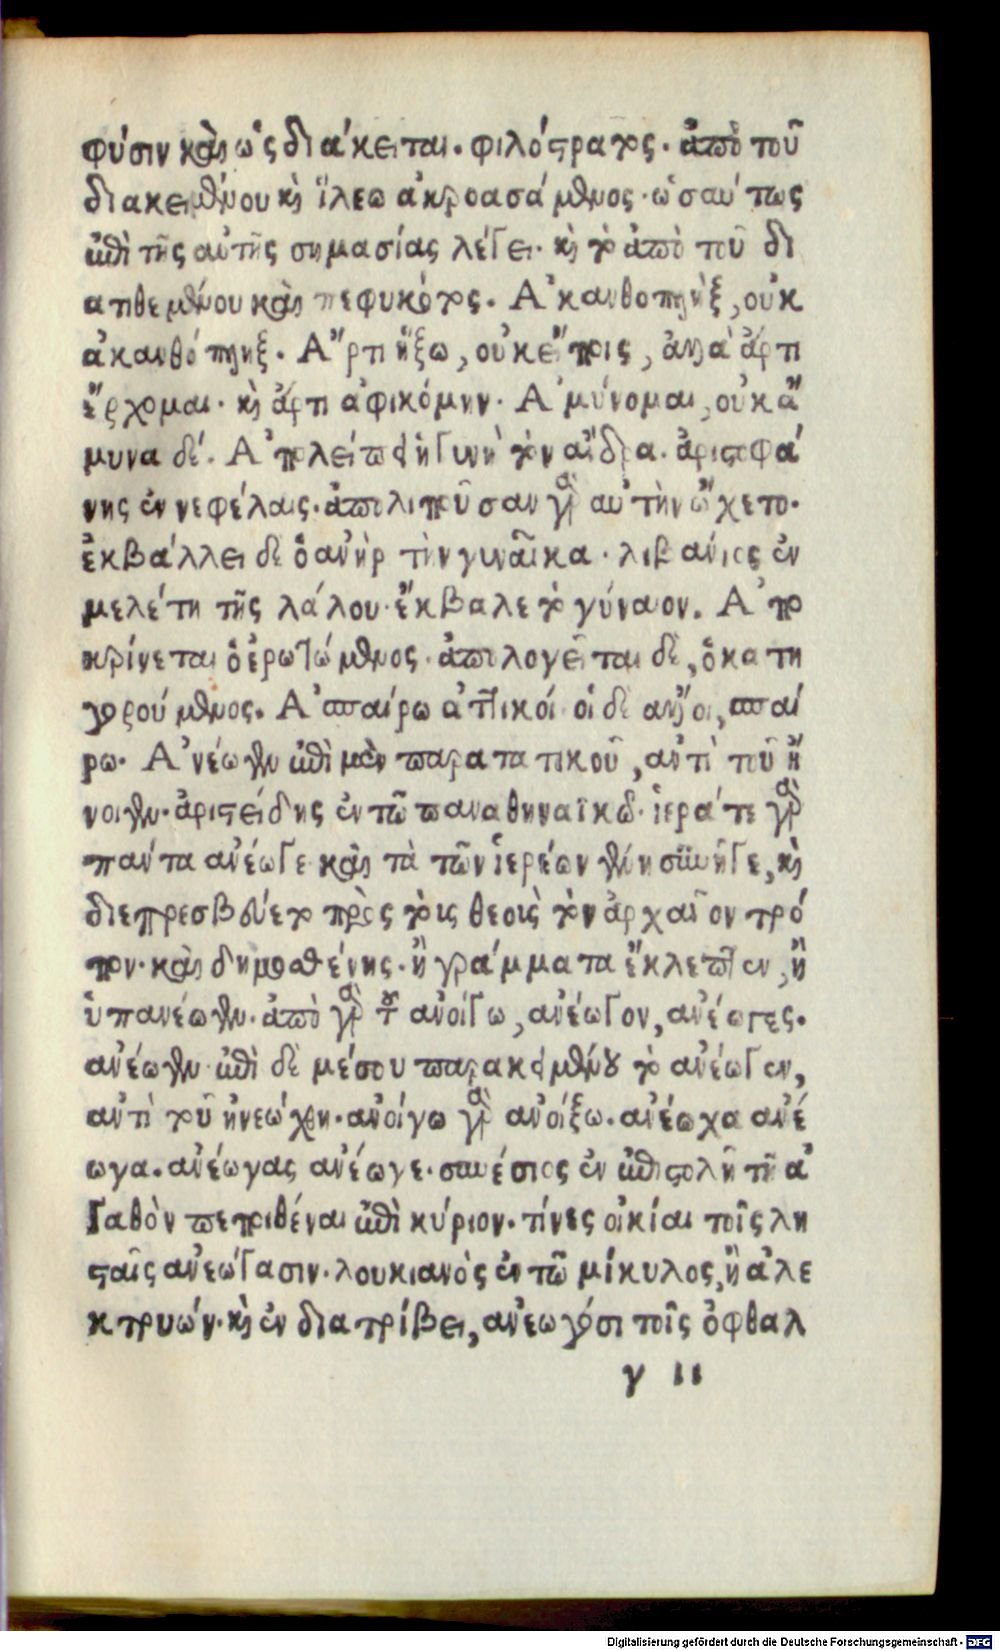 φύσιν καὶ ὡς διάκειται. φιλόστρατος. ἀπὸ τοῦ
διακειμένου καὶ ἵλεω ἀκροασάμενος. ὡσαύτως
ἐπὶ τῆς αὐτῆς σημασίας λέγει. καὶ τὸ ἀπὸ τοῦ δι
ατιθεμένου καὶ πεφυκότος. Ἀκανθοπλὴξ, οὐκ
ἀκανθόπληξ. Ἄρτι ἥξω, οὐκ εἴποις, ἀλλὰ ἄρτι
ἔρχομαι. καὶ ἄρτι ἀφικόμην. Ἀμύνομαι, οὐκ ἄ
μυνα δέ. Ἀπολείπει ἡ γυνὴ τὸν ἄνδρα. ἀριστοφά
νης ἐν νεφέλαις. ἀπολιποῦσαν γὰρ αὐτὴν ᾤχετο.
ἐκβάλλει δὲ ὁ ἀνὴρ τὴν γυναῖκα. λιβάνιος ἐν
μελέτη τῆς λάλου. ἔκβαλε τὸ γύναιον. Ἀπο
κρίνεται ὁ ἐρωτώμενος. ἀπολογεῖται δὲ, ὁ κατη
γορούμενος. Ἀπαίρω ἀττικοί οἱ δὲ ἄλλοι, ἐπαί
ρω. Ἀνέωγεν ἐπὶ μὲν παρατατικοῦ, ἀντὶ τοῦ ἤ
νοιγεν. ἀριστείδης ἐν τῷ παναθηναϊκῷ. ἱερά τε γὰρ
πάντα ἀνέωγε καὶ τὰ τῶν ἱερέων γένη συνῆγε, καὶ
διεπρεσβεύετο πρὸς τοὺς θεοὺς τὸν ἀρχαῖον τρό
πον. καὶ δημοσθένης. ἢ γράμματα ἔκλεπτεν, ἢ
ὑπανέωγεν. ἀπὸ γὰρ τοῦ ἀνοίγω, ἀνέωγον, ἀνέωγες.
ἀνέωγεν ἐπὶ δὲ μέσου παρακειμένου τὸ ἀνέωγεν,
ἀντὶ τοῦ ἠνεώχθη. ἀνοίγω γὰρ ἀνοίξω. ἀνέωχα ἀνέ
ωγα. ἀνέωγας ἀνέωγε. συνέσιος ἐν ἐπιστολῇ τῇ ἀ
γαθὸν περιθέναι ἐπὶ κύριον. τίνες οἰκίαι τοῖς λη
σταῖς ἀνεώγασιν. λουκιανὸς ἐν τῷ μίκυλος, ἢ ἀλε
κτρυών. καὶ ἐν διατρίβει, ἀνεωγόσι τοῖς ὀφθαλ
γ ιι
Digitalisierung gefördert durch die Deutsche Forschungsgemeinschaft - DFG